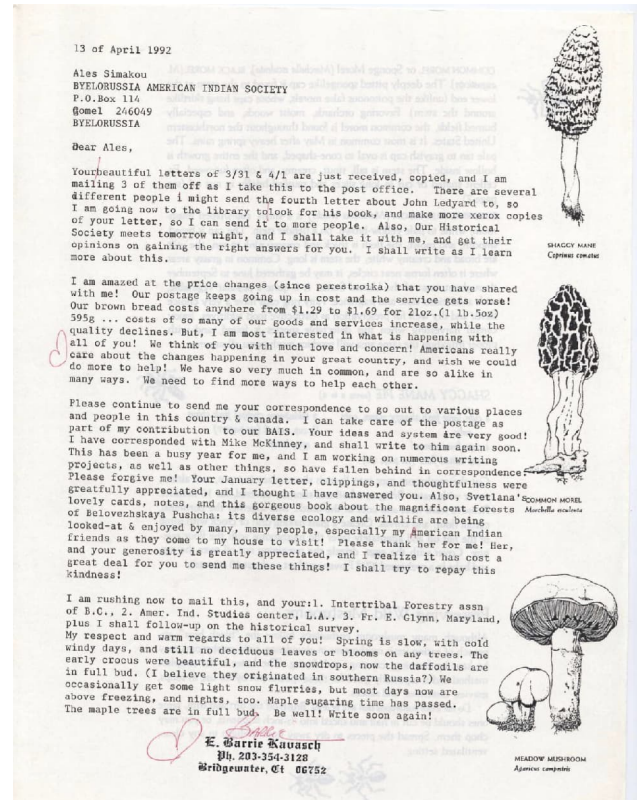 13 of April 1992
Ales Simakou
BYELORUSSIA AMERICAN INDIAN SOCIETY
P.O.Box 114
Gomel  246049
BYELORUSSIA
Dear Ales,
Yourbeautiful letters of 3/31 & 4/1 are just received, copied, and I am
mailing 3 of them off as I take this to the post office.  There are several
different people i might send the fourth letter about John Ledyard to, so
I am going now to the library tolook for his book, and make more xerox copies
of your letter, so I can send it to more people.  Also, Our Historical
Society meets tomorrow night, and I shall take it with me, and get their
opinions on gaining the right answers for you.  I shall write as I learn
more about this.
I am amazed at the price changes (since perestroika) that you have shared
with me!  Our postage keeps going up in cost and the service gets worse!
Our brown bread costs anywhere from $1.29 to $1.69 for 21oz.(1 lb.5oz)
595g ... costs of so many of our goods and services increase, while the
quality declines. But, I am most interested in what is happening with
all of you!  We think of you with much love and concern! Americans really
care about the changes happening in your great country, and wish we could
do more to help!  We have so very much in common, and are so alike in
many ways.  We need to find more ways to help each other.
Please continue to send me your correspondence to go out to various places
and people in this country & canada.  I can take care of the postage as
part of my contribution to our BAIS.  Your ideas and system are very good!
I have corresponded with Mike McKinney, and shall write to him again soon.
This has been a busy year for me, and I am working on numerous writing
projects, as well as other things, so have fallen behind in correspondence.
Please forgive me!  Your January letter, clippings, and thoughtfulness were
greatfully appreciated, and I thought I have answered you. Also, Svetlana's
lovely cards, notes, and this gorgeous book about the magnificent forests
of Belovezhskaya Pushcha: its diverse ecology and wildlife are being
looked-at & enjoyed by many, many people, especially my American Indian
friends as they come to my house to visit!  Please thank her for me! Her,
and your generosity is greatly appreciated, and I realize it has cost a
great deal for you to send me these things! I shall try to repay this
kindness!
I am rushing now to mail this, and your:1. Intertribal Forestry assn
of B.C., 2. Amer. Ind. Studies center, L.A., 3. Fr. E. Glynn, Maryland,
plus I shall follow-up on the historical survey.
My respect and warm regards to all of you!  Spring is slow, with cold
windy days, and still no deciduous leaves or blooms on any trees. The
early crocus were beautiful, and the snowdrops, now the daffodils are
in full bud. (I believe they originated in southern Russia?) We
occasionally get some light snow flurries, but most days now are
above freezing, and nights, too. Maple sugaring time has passed.
The maple trees are in full bud.  Be well! Write soon again!
Barrie
E. Barrie Kavasch
Ph. 203-354-3128
Bridgewater, Ct  06752
SHAGGY MANE
Coprinus comatus
COMMON MOREL
Morchella esculenta
MEADOW MUSHROOM
Agaricus campestris